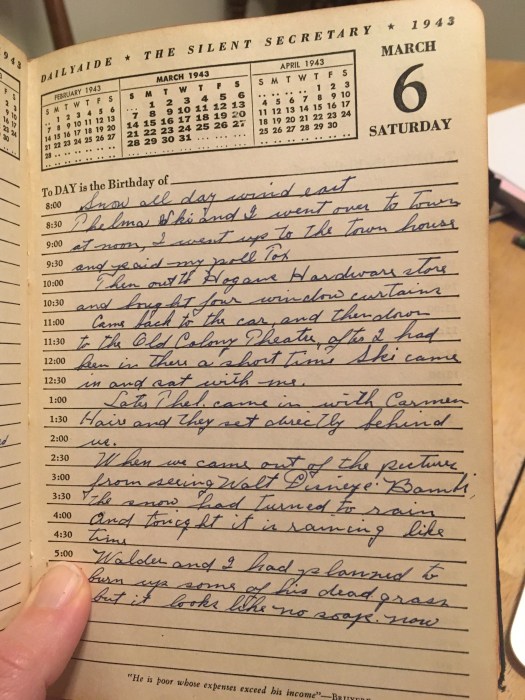 DAILYAIDE * THE SILENT SECRETARY * 1943
FEBRUARY 1943
S M T W T F S
1 2 3 4 5 6
7 8 9 10 11 12 13
14 15 16 17 18 19 20
21 22 23 24 25 26 27
28
MARCH 1943
S M T W T F S
1 2 3 4 5 6
7 8 9 10 11 12 13
14 15 16 17 18 19 20
21 22 23 24 25 26 27
28 29 30 31
APRIL 1943
S M T W T F S
1 2 3
4 5 6 7 8 9 10
11 12 13 14 15 16 17
18 19 20 21 22 23 24
25 26 27 28 29 30
MARCH
6
SATURDAY
To DAY is the Birthday of
8:00 Snow all day wind east
8:30 Thelma Ski and I went over to town
9:00 at noon, I went up to the town house
9:30 and paid my poll Tax
10:00 Then out to Hogans Hardware store
10:30 and bought four window curtains
11:00 Came back to the car, and then down
11:30 to the Old Colony Theater, after I had
12:00 been in there a short time Ski came
12:30 in and sat with me.
1:00 Later Thel. came in with Carmen
1:30 Hair and they set directly behind
2:00 us.
2:30 When we came out of the picture
3:00 from seeing Walt Disneye Bambi,
3:30 The snow had turned to rain
4:00 And tonight it is raining like
4:30 time
5:00 Walder and I had planned to
burn up some of his dead grass
but it looks like no soap now
"He is poor whose expenses exceed his income"—BRUYERE